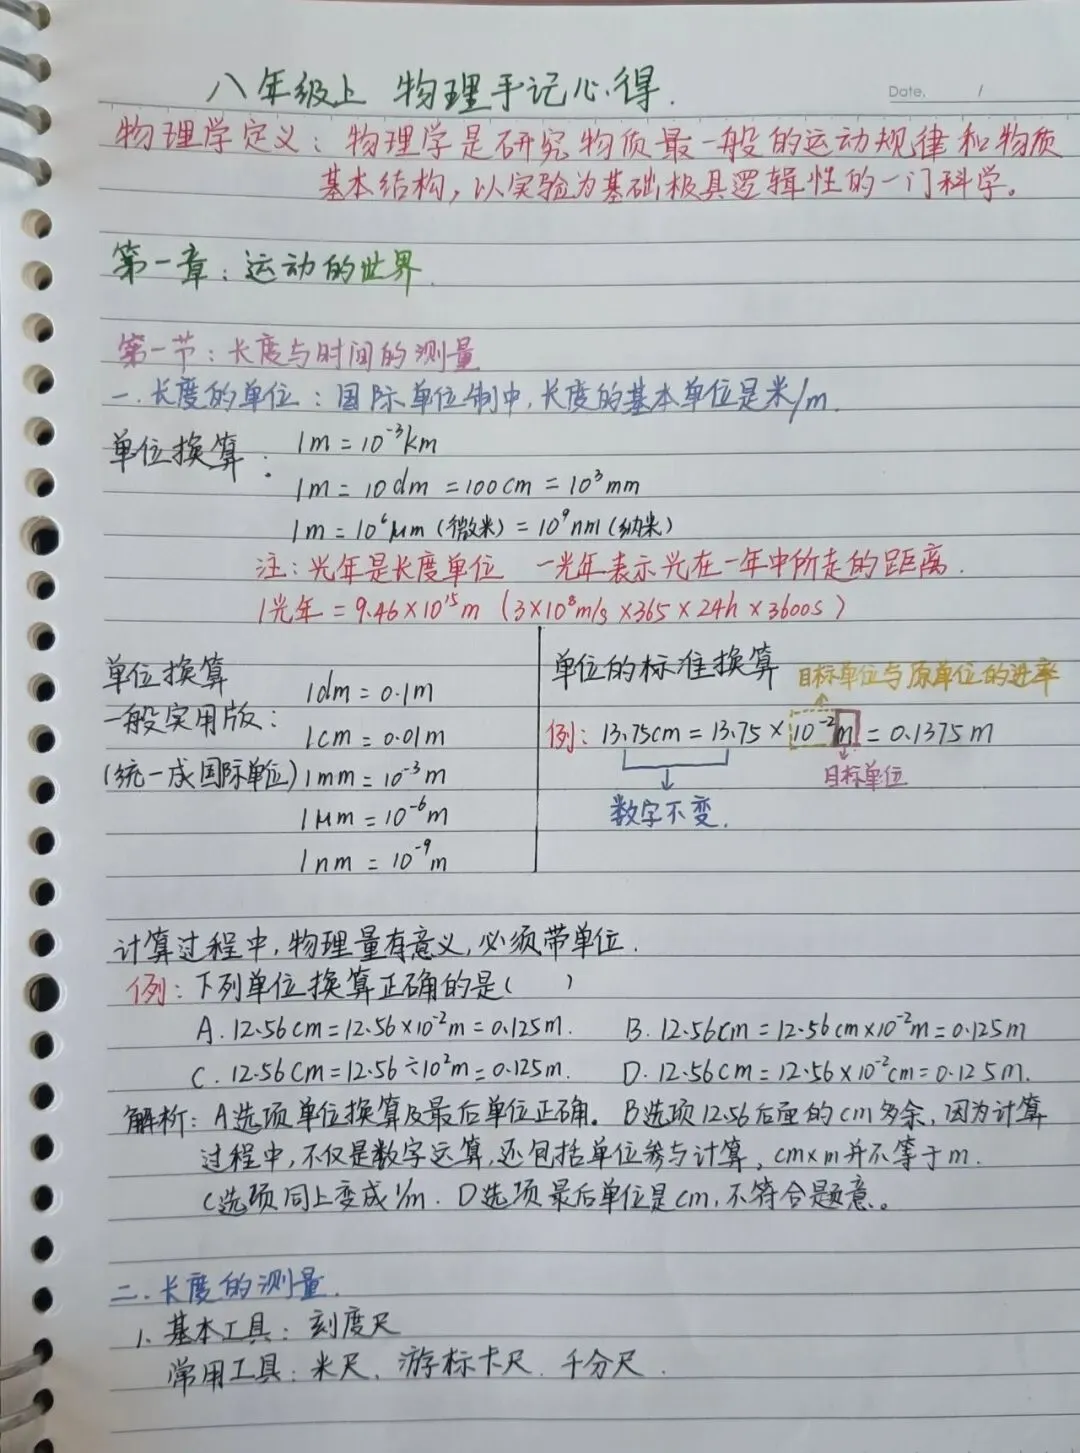 八年级上 物理手记心得.
Date. /
物理学定义：物理学是研究物质最一般的运动规律和物质
基本结构，以实验为基础极具逻辑性的一门科学。
第一章：运动的世界.
第一节：长度与时间的测量
一.长度的单位：国际单位制中,长度的基本单位是米/m.
单位换算： 1m = 10⁻³km
1m = 10dm = 100cm = 10³mm
1m = 10⁶μm (微米) = 10⁹nm (纳米)
注：光年是长度单位 一光年表示光在一年中所走的距离.
1光年 = 9.46×10¹⁵m (3×10⁸m/s ×365 × 24h × 3600s)
单位换算
一般实用版：
(统一成国际单位)
1dm = 0.1m
1cm = 0.01m
1mm = 10⁻³m
1μm = 10⁻⁶m
1nm = 10⁻⁹m
单位的标准换算
目标单位与原单位的进率
例：13.75cm = 13.75 × 10⁻²m = 0.1375m
目标单位
数字不变.
计算过程中,物理量有意义,必须带单位.
例：下列单位换算正确的是( )
A. 12.56cm = 12.56×10⁻²m = 0.125m. B. 12.56cm = 12.56cm×10⁻²m = 0.125m
C. 12.56cm = 12.56÷10²m = 0.125m. D. 12.56cm = 12.56×10⁻²cm = 0.125m.
解析：A选项单位换算及最后单位正确。B选项12.56后面的cm多余,因为计算
过程中,不仅是数字运算,还包括单位参与计算,cm×m并不等于m.
C选项同上变成1/m. D选项最后单位是cm,不符合题意。
二.长度的测量.
1.基本工具：刻度尺
常用工具：米尺、游标卡尺、千分尺.